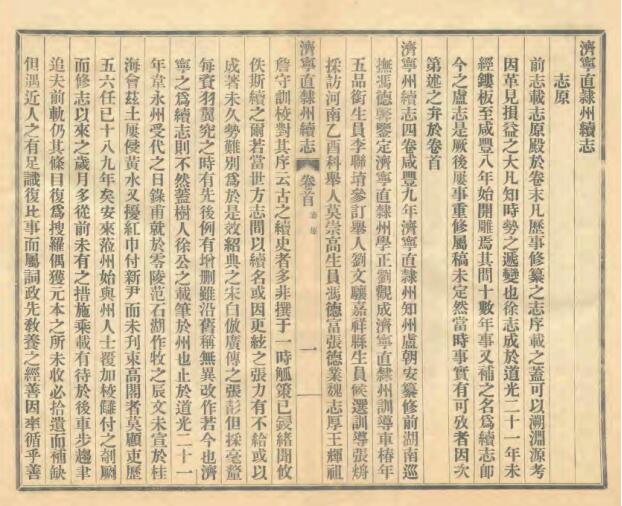 濟寧直隸州續志
志原
前志載志原殿於卷末凡歷事修纂之志序載之蓋可以溯淵源考
因革見損益之大凡知時勢之遞變也徐志成於道光二十一年未
經鏤板至咸豐八年始開雕焉其間十數年事又補之名爲續志即
今之盧志是厥後屢事重修屬稿未定然當時事實有可攷者因次
第述之弁於卷首
濟寧州續志四卷咸豐九年濟寧直隸州知州盧朝安纂修前湖南巡
撫馮德馨鑒定濟寧直隸州學正劉觀成濟寧直隸州訓導車椿年
五品銜生員李聯堉參訂舉人劉文驤嘉祥縣生員候選訓導張炳
採訪河南乙酉科舉人莫崇高生員馮德富張德業魏志厚王輝祖
濟寧直隸州續志
卷首
志原
一
詹守訓校對其序云古之續史者多非撰于一時觚策已裂緒聞攸
佚斯續之爾若當世方志間以續名或因更絃之張力有不給或以
成著未久勢難別爲於是效紹典之宋白倣廣傳之張彭但採毫釐
每資羽翼究之時有先後例有增刪雖沿舊稱無異改作若今也濟
寧之爲續志則不然蓋樹人徐公之載筆於州也止於道光二十一
年韋永州受代之日錄甫就於零陵范石湖作牧之辰文未宣於桂
海會茲土屢侵黃水又擾紅巾付新尹而未刋束高閣者莫顧吏歷
五六任已十八九年矣安來蒞州始與州人士覆加校讎付之剞劂
而修志以來之歲月多從前未有之措施乘載有待於後車步趨聿
追夫前軌仍其條目復爲搜羅偶獲元本之所未收必拾遺而補缺
但遇近人之有足識復比事而屬詞政先敎養之經善因率循乎善